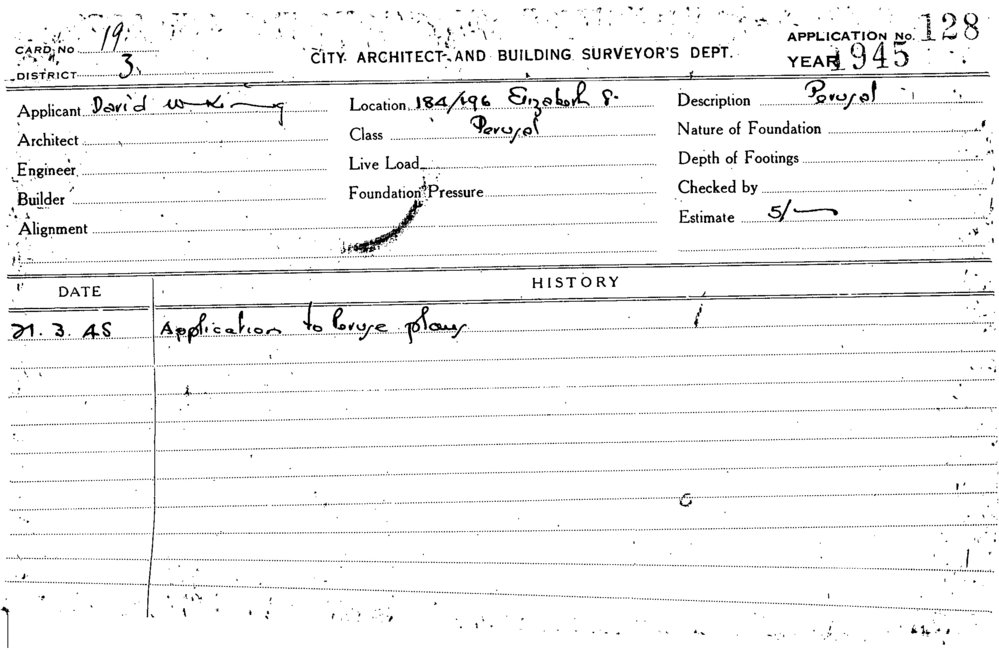 CARD No 19
DISTRICT 3
CITY ARCHITECT AND BUILDING SURVEYOR'S DEPT.
APPLICATION No. 128
YEAR 1945
Applicant David W King
Architect
Engineer
Builder
Alignment
Location 184/196 Elizabeth S.
Class Perusal
Live Load
Foundation Pressure
Description Perusal
Nature of Foundation
Depth of Footings
Checked by
Estimate 5/-
DATE HISTORY
21.3.45 Application to Peruse plans